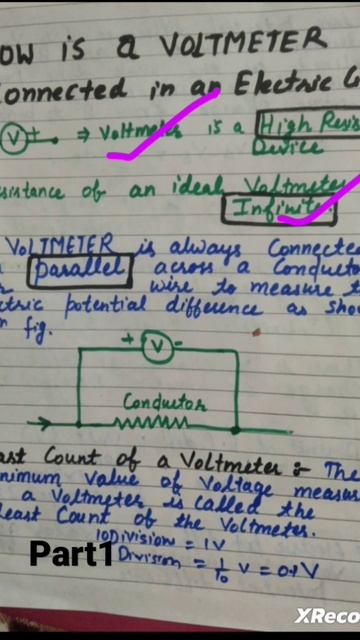 OW IS a VOLTMETER
Connected in an Electric C
V + ⇒ Voltmeter is a High Resis
Device
sistance of an ideal Voltmeter
Infinite.
VOLTMETER is always Connecte
parallel across a Conducto
wire to measure t
ctric potential difference as sho
fig.
+ V -
Conductor
ast Count of a Voltmeter :- The
nimum value of Voltage measu
a Voltmeter is called the
Least Count of the Voltmeter.
10 Division = 1V
Part1
Division = 1/10 V = 0.1V
XReco